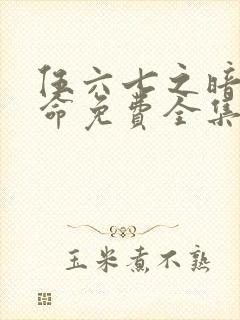 伍六七之暗
命免费全集
玉米煮不熟